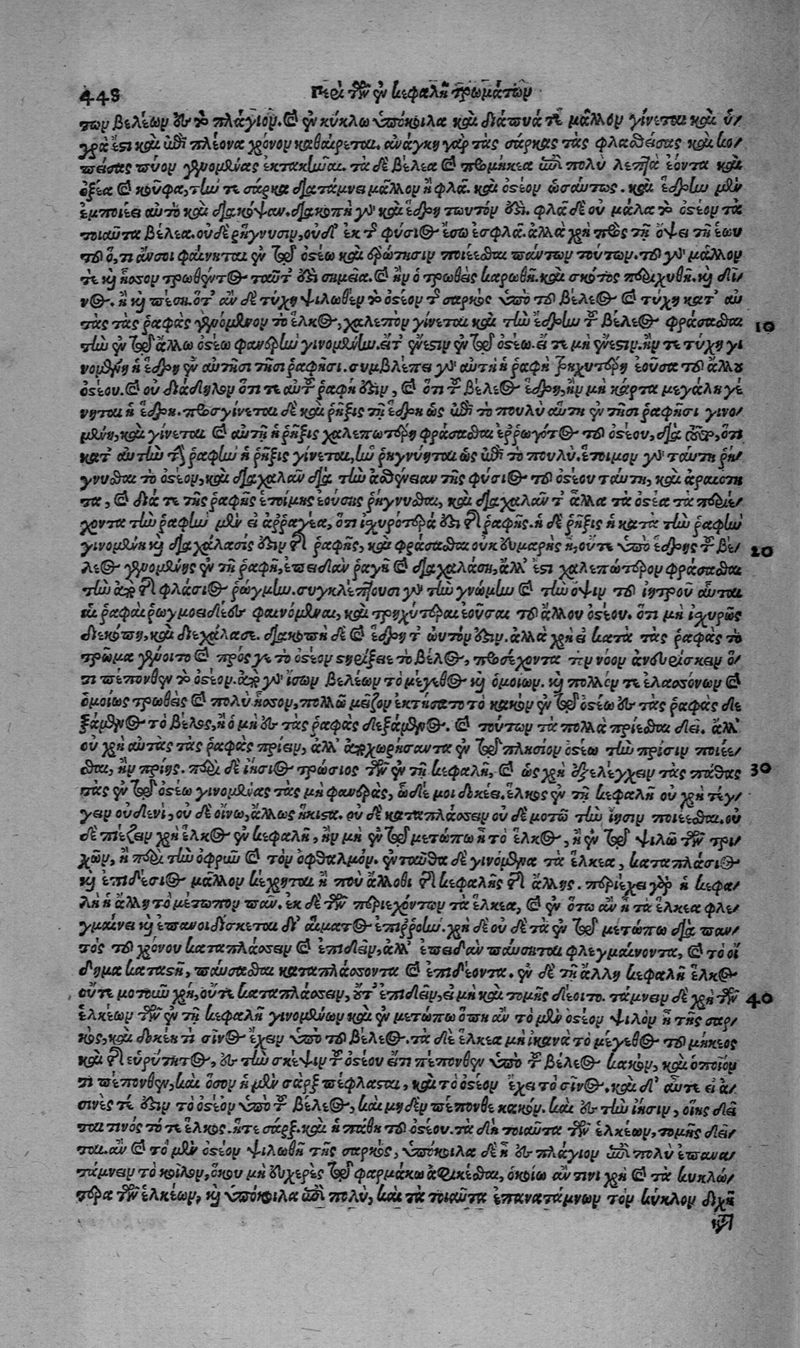 448 Περὶ τῶν ἐν κεφαλῇ τρωμάτων
των βελέων ἐς τὸ πλάγιον. καὶ ἐν κύκλῳ ὑπόκοιλα καὶ διάπυά τε μᾶλλον γίνεται καὶ ὑ/
γρὰ ἐπὶ καὶ ἐπὶ πλέονα χρόνον καθαίρεται. ἀνάγκη γὰρ τὰς σάρκας τὰς φλασθείσας καὶ κο/
πείσας πύον γενομένας ἐκτακῆναι. τὰ δὲ βέλεα καὶ προμήκεα ἐπὶ πολὺ λεπτὰ ἐόντα καὶ
ὀξέα καὶ κοῦφα, τήν τε σάρκα διατάμνει μᾶλλον ἢ φλᾷ. καὶ ὀστέον ὡσαύτως. καὶ ἕδρην μὲν
ἐμποιέει αὐτὸ καὶ διακόψαν. διακοπὴ γὰρ καὶ ἕδρη τωυτόν ἐστι. φλᾷ δὲ οὐ μάλα τὸ ὀστέον τὰ
τοιαῦτα βέλεα. οὐδὲ ῥήγνυσιν, οὐδ' ἐκ τῆς φύσιος ἔσω ἐσφλᾷ. ἀλλὰ χρὴ πρὸς τῇ ὄψει τῇ ἑωυ
τοῦ ὅ, τι ἄν σοι φαίνηται ἐν τῷ ὀστέῳ καὶ ἐρώτησιν ποιέεσθαι πάντων τούτων. τοῦ γὰρ μᾶλλον
τε καὶ ἧσσον τρωθέντος ταῦτ' ἐστὶ σημεῖα. καὶ ἢν ὁ τρωθεὶς καρωθῇ. καὶ σκότος περιχυθῇ. καὶ δῖ/
νος. ἢ καὶ πέσῃ. ὅτ' ἂν δὲ τύχῃ ψιλωθὲν τὸ ὀστέον τῆς σαρκὸς ὑπὸ τοῦ βέλεος καὶ τύχῃ κατ' αὐ
τὰς τὰς ῥαφὰς γενόμενον τὸ ἕλκος, χαλεπὸν γίνεται καὶ τὴν ἕδρην τοῦ βέλεος φράσασθαι 10
τὴν ἐν τῷ ἄλλῳ ὀστέῳ φανερὴν γινομένην. εἴτ' ἔνεστιν ἐν τῷ ὀστέῳ. εἴ τε μὴ ἔνεστιν. ἤν τε τύχῃ γι
νομένη ἡ ἕδρη ἐν αὐτῇσι τῇσι ῥαφῇσι. συμβλέπει γὰρ αὐτὴ ἡ ῥαφὴ τρηχυτέρη ἐοῦσα τοῦ ἄλλου
ὀστέου. καὶ οὐ διάδηλον ὅτι τε αὐτοῦ ῥαφή ἐστιν, καὶ ὅτι τοῦ βέλεος ἕδρη, ἢν μὴ κάρτα μεγάλη γέ
νηται ἡ ἕδρη. προσγίνεται δὲ καὶ ῥῆξις τῇ ἕδρῃ ὡς ἐπὶ τὸ πουλὺ αὕτη ἐν τῇσι ῥαφῇσι γινο/
μένῃ, καὶ γίνεται καὶ αὐτὴ ἡ ῥῆξις χαλεπωτέρη φράσασθαι ἐῤῥωγότος τοῦ ὀστέου, διὰ τοῦτο, ὅτι
κατ' αὐτὴν τὴν ῥαφὴν ἡ ῥῆξις γίνεται, ἢν ῥηγνύηται ὡς ἐπὶ τὸ πουλύ. ἕτοιμον γὰρ ταύτῃ ῥή/
γνυσθαι τὸ ὀστέον, καὶ διαχαλᾶν διὰ τὴν ἀσθένειαν τῆς φύσιος τοῦ ὀστέου ταύτῃ, καὶ ἀραιότη
τα, καὶ διά τε τῆς ῥαφῆς ἑτοίμης ἐούσης ῥήγνυσθαι, καὶ διαχαλᾶν τ' ἄλλα τὰ ὀστέα τὰ περιέ/
χοντα τὴν ῥαφὴν μένει ἀῤῥαγέα, ὅτι ἰσχυρότερά ἐστι τῆς ῥαφῆς. ἡ δὲ ῥῆξις ἡ κατὰ τὴν ῥαφὴν
γινομένη καὶ διαχάλασίς ἐστι τῆς ῥαφῆς, καὶ φράσασθαι οὐκ εὐμαρὴς ἡ, οὔτε ὑπὸ ἕδρης τοῦ βέ/ 20
λεος γενομένης ἐν τῇ ῥαφῇ, ἐπειδὰν ῥαγῇ καὶ διαχαλάσῃ, ἀλλ' ἔτι χαλεπώτερον φράσασθαι
τὴν ἀπὸ τῆς φλάσιος ῥωγμήν. συγκλέπτουσι γὰρ τὴν γνώμην καὶ τὴν ὄψιν τοῦ ἰητροῦ αὗται
αἱ ῥαφαὶ ῥωγμοειδέες φαινόμεναι, καὶ τρηχύτεραι ἐοῦσαι τοῦ ἄλλου ὀστέου. ὅτι μὴ ἰσχυρῶς
διεκόπη, καὶ διεχάλασε. διακοπὴ δὲ καὶ ἕδρη τ' ωὐτόν ἐστιν. ἀλλὰ χρὴ εἰ κατὰ τὰς ῥαφὰς τὸ
τρῶμα γένοιτο καὶ πρός γε τὸ ὀστέον στηρίξειε τὸ βέλος, προσέχοντα τὸν νόον ἀνευρίσκειν ὅ/
τι πέπονθεν τὸ ὀστέον. ἀπὸ γὰρ ἴσων βελέων τὸ μέγεθος καὶ ὁμοίων. καὶ πολλόν τε ἐλασσόνων καὶ
ὁμοίως τρωθεὶς καὶ πολὺ ἧσσον, πολλῷ μεῖζον ἐκτήσατο τὸ κακὸν ἐν τῷ ὀστέῳ ἐς τὰς ῥαφὰς δε
ξάμενος τὸ βέλος, ἢ ὁ μὴ ἐς τὰς ῥαφὰς δεξάμενος. καὶ τούτων τὰ πολλὰ πρίεσθαι δεῖ. ἀλλ'
οὐ χρὴ αὐτὰς τὰς ῥαφὰς πρίειν, ἀλλ' ἀποχωρήσαντα ἐν τῷ πλησίον ὀστέῳ τὴν πρῖσιν ποιέε/
σθαι, ἢν πρίῃς. περὶ δὲ ἰήσιος τρώσιος τῶν ἐν τῇ κεφαλῇ, καὶ ὡς χρὴ ἐξελέγχειν τὰς πάθας 30
τὰς ἐν τῷ ὀστέῳ γινομένας τὰς μὴ φανεράς, ὧδέ μοι δοκέει. ἕλκος ἐν τῇ κεφαλῇ οὐ χρὴ τέγ/
γειν οὐδενί, οὐδὲ οἴνῳ, ἄλλως ἥκιστα. οὐδὲ καταπλάσσειν οὐδὲ μοτῷ τὴν ἴησιν ποιέεσθαι. οὐ
δὲ πιέζειν χρὴ ἕλκος ἐν κεφαλῇ, ἢν μὴ ἐν τῷ μετώπῳ ᾖ τὸ ἕλκος, ἢ ἐν τῷ ψιλῷ τῶν τρι/
χῶν, ἢ περὶ τὴν ὀφρὺν καὶ τὸν ὀφθαλμόν. ἐνταῦθα δὲ γινόμενα τὰ ἕλκεα, καταπλάσιος
καὶ ἐπιδέσιος μᾶλλον κέχρηται ἢ που ἄλλοθι τῆς κεφαλῆς τῆς ἄλλης. περιέχει γὰρ ἡ κεφα/
λὴ ἡ ἄλλη τὸ μέτωπον πᾶν. ἐκ δὲ τῶν περιεχόντων τὰ ἕλκεα, καὶ ἐν ὅτῳ ἂν ᾖ τὰ ἕλκεα φλε/
γμαίνει καὶ ἐπανοιδίσκεται δι' αἵματος ἐπιῤῥοήν. χρὴ δὲ οὐδὲ τὰ ἐν τῷ μετώπῳ διὰ παν/
τὸς τοῦ χρόνου καταπλάσσειν καὶ ἐπιδεῖν, ἀλλ' ἐπειδὰν παύσηται φλεγμαίνοντα, καὶ τὸ οἴ
δημα καταστῇ, παύσασθαι καταπλάσσοντα καὶ ἐπιδέοντα. ἐν δὲ τῇ ἄλλῃ κεφαλῇ ἕλκος
οὔτε μοτοῦν χρή, οὔτε καταπλάσσειν, οὔτ' ἐπιδεῖν, εἰ μὴ καὶ τομῆς δέοιτο. τάμνειν δὲ χρὴ τῶν 40
ἑλκέων τῶν ἐν τῇ κεφαλῇ γινομένων καὶ ἐν μετώπῳ ὅπῃ ἂν τὸ μὲν ὀστέον ψιλὸν ᾖ τῆς σαρ/
κός, καὶ δοκέῃ τι σῖνος ἔχειν ὑπὸ τοῦ βέλεος. τὰ δὲ ἕλκεα μὴ ἱκανὰ τὸ μέγεθος τοῦ μήκεος
καὶ τῆς εὐρύτητος, ἐς τὴν σκέψιν τοῦ ὀστέου εἴ τι πέπονθεν ὑπὸ τοῦ βέλεος κακόν, καὶ ὁποῖόν
τι πέπονθεν, καὶ ὅσον ἡ μὲν σὰρξ πέφλασται, καὶ τὸ ὀστέον ἔχει τὸ σῖνος. καὶ δ' αὖτε εἰ ἀ/
σινές τέ ἐστιν τὸ ὀστέον ὑπὸ τοῦ βέλεος, καὶ μηδὲν πέπονθε κακόν. καὶ ἐς τὴν ἴησιν, οἵης δεῖ
ταί τινος τό τε ἕλκος. ἥτε σάρξ. καὶ ἡ πάθη τοῦ ὀστέου. τὰ δὴ τοιαῦτα τῶν ἑλκέων, τομῆς δεῖ/
ται. ἂν καὶ τὸ μὲν ὀστέον ψιλωθῇ τῆς σαρκός, ὑπόκοιλα δὲ ᾖ ἐς πλάγιον ἐπὶ πολὺ ἐπανα/
τάμνειν τὸ κοῖλον, ὅκου μὴ εὐχερὲς τῷ φαρμάκῳ ἀφικέσθαι, ὁκοίῳ ἄν τινι χρῇ καὶ τὰ κυκλώ/
τερα τῶν ἑλκέων, καὶ ὑπόκοιλα ἐπὶ πολύ, καὶ τὰ τοιαῦτα ἐπανατάμνων τὸν κύκλον διχῇ